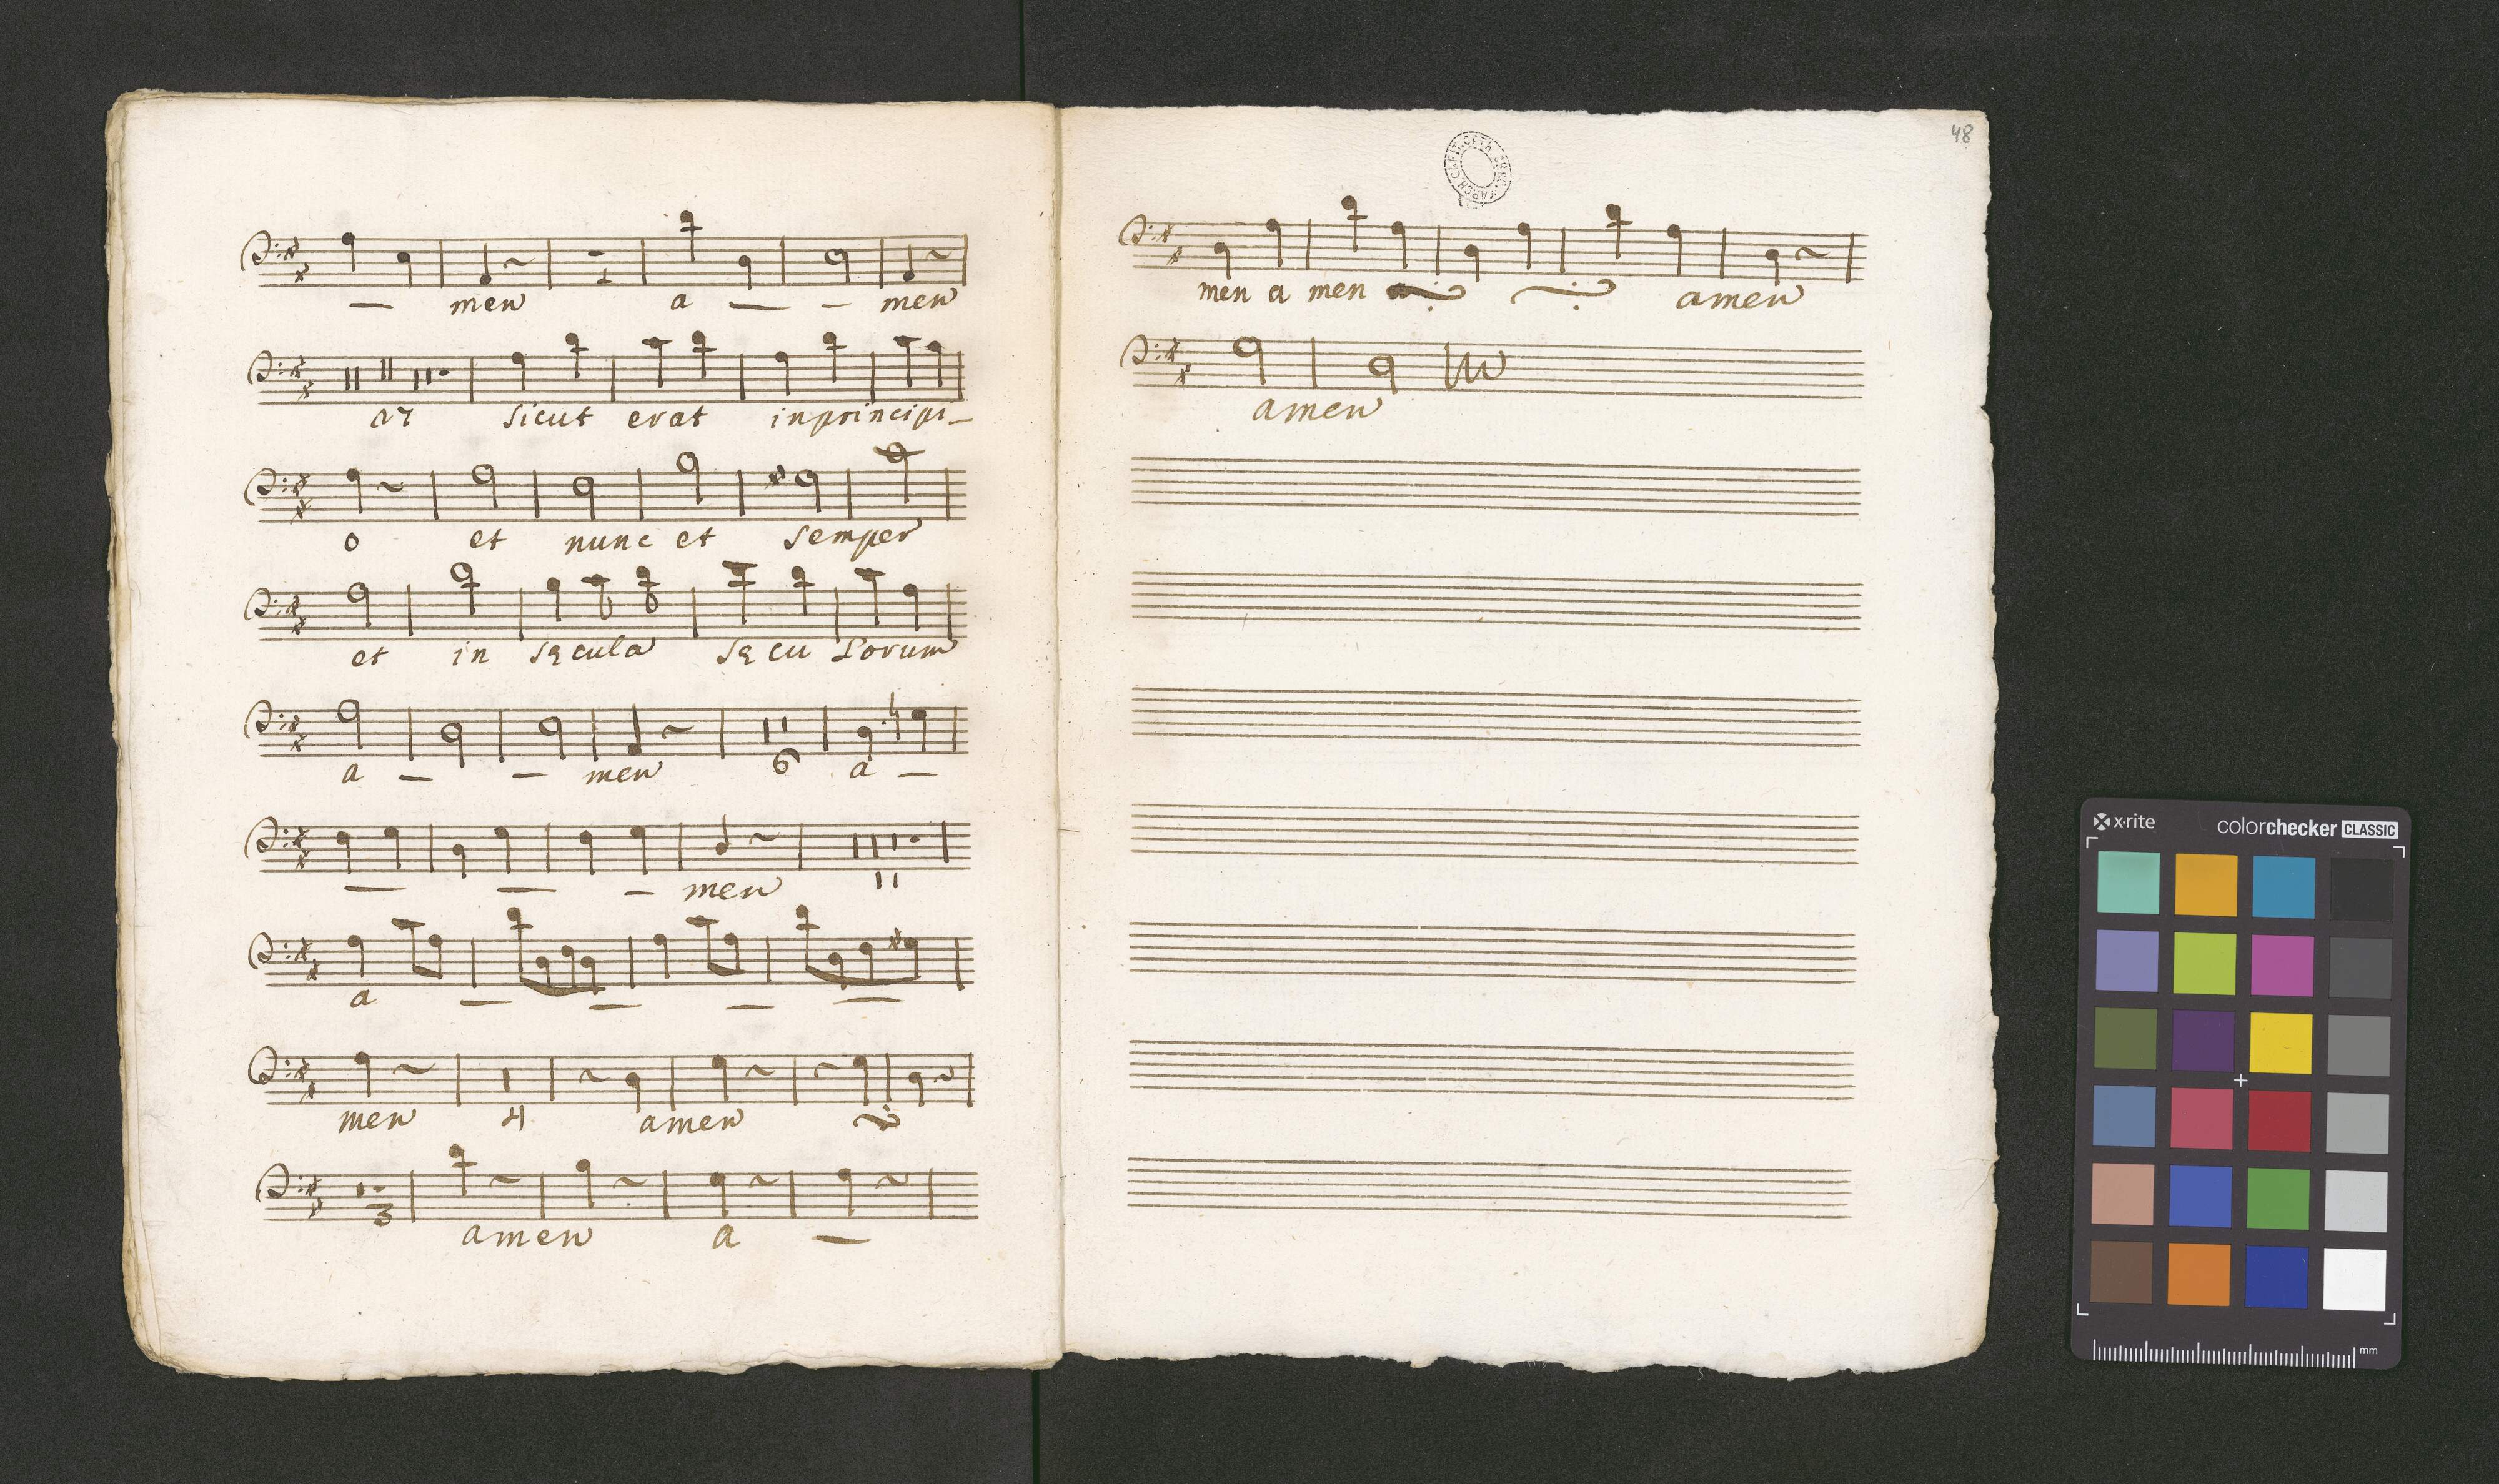 — men a — — men
27 sicut erat inprincipi_
o et nunc et semper
et in sęcula sęcu Lorum
a — — men 6 a —
— — — men 11
a — — — —
men 4 amen
3 amen a —
48
men a men amen
amen
x·rite colorchecker CLASSIC
mm